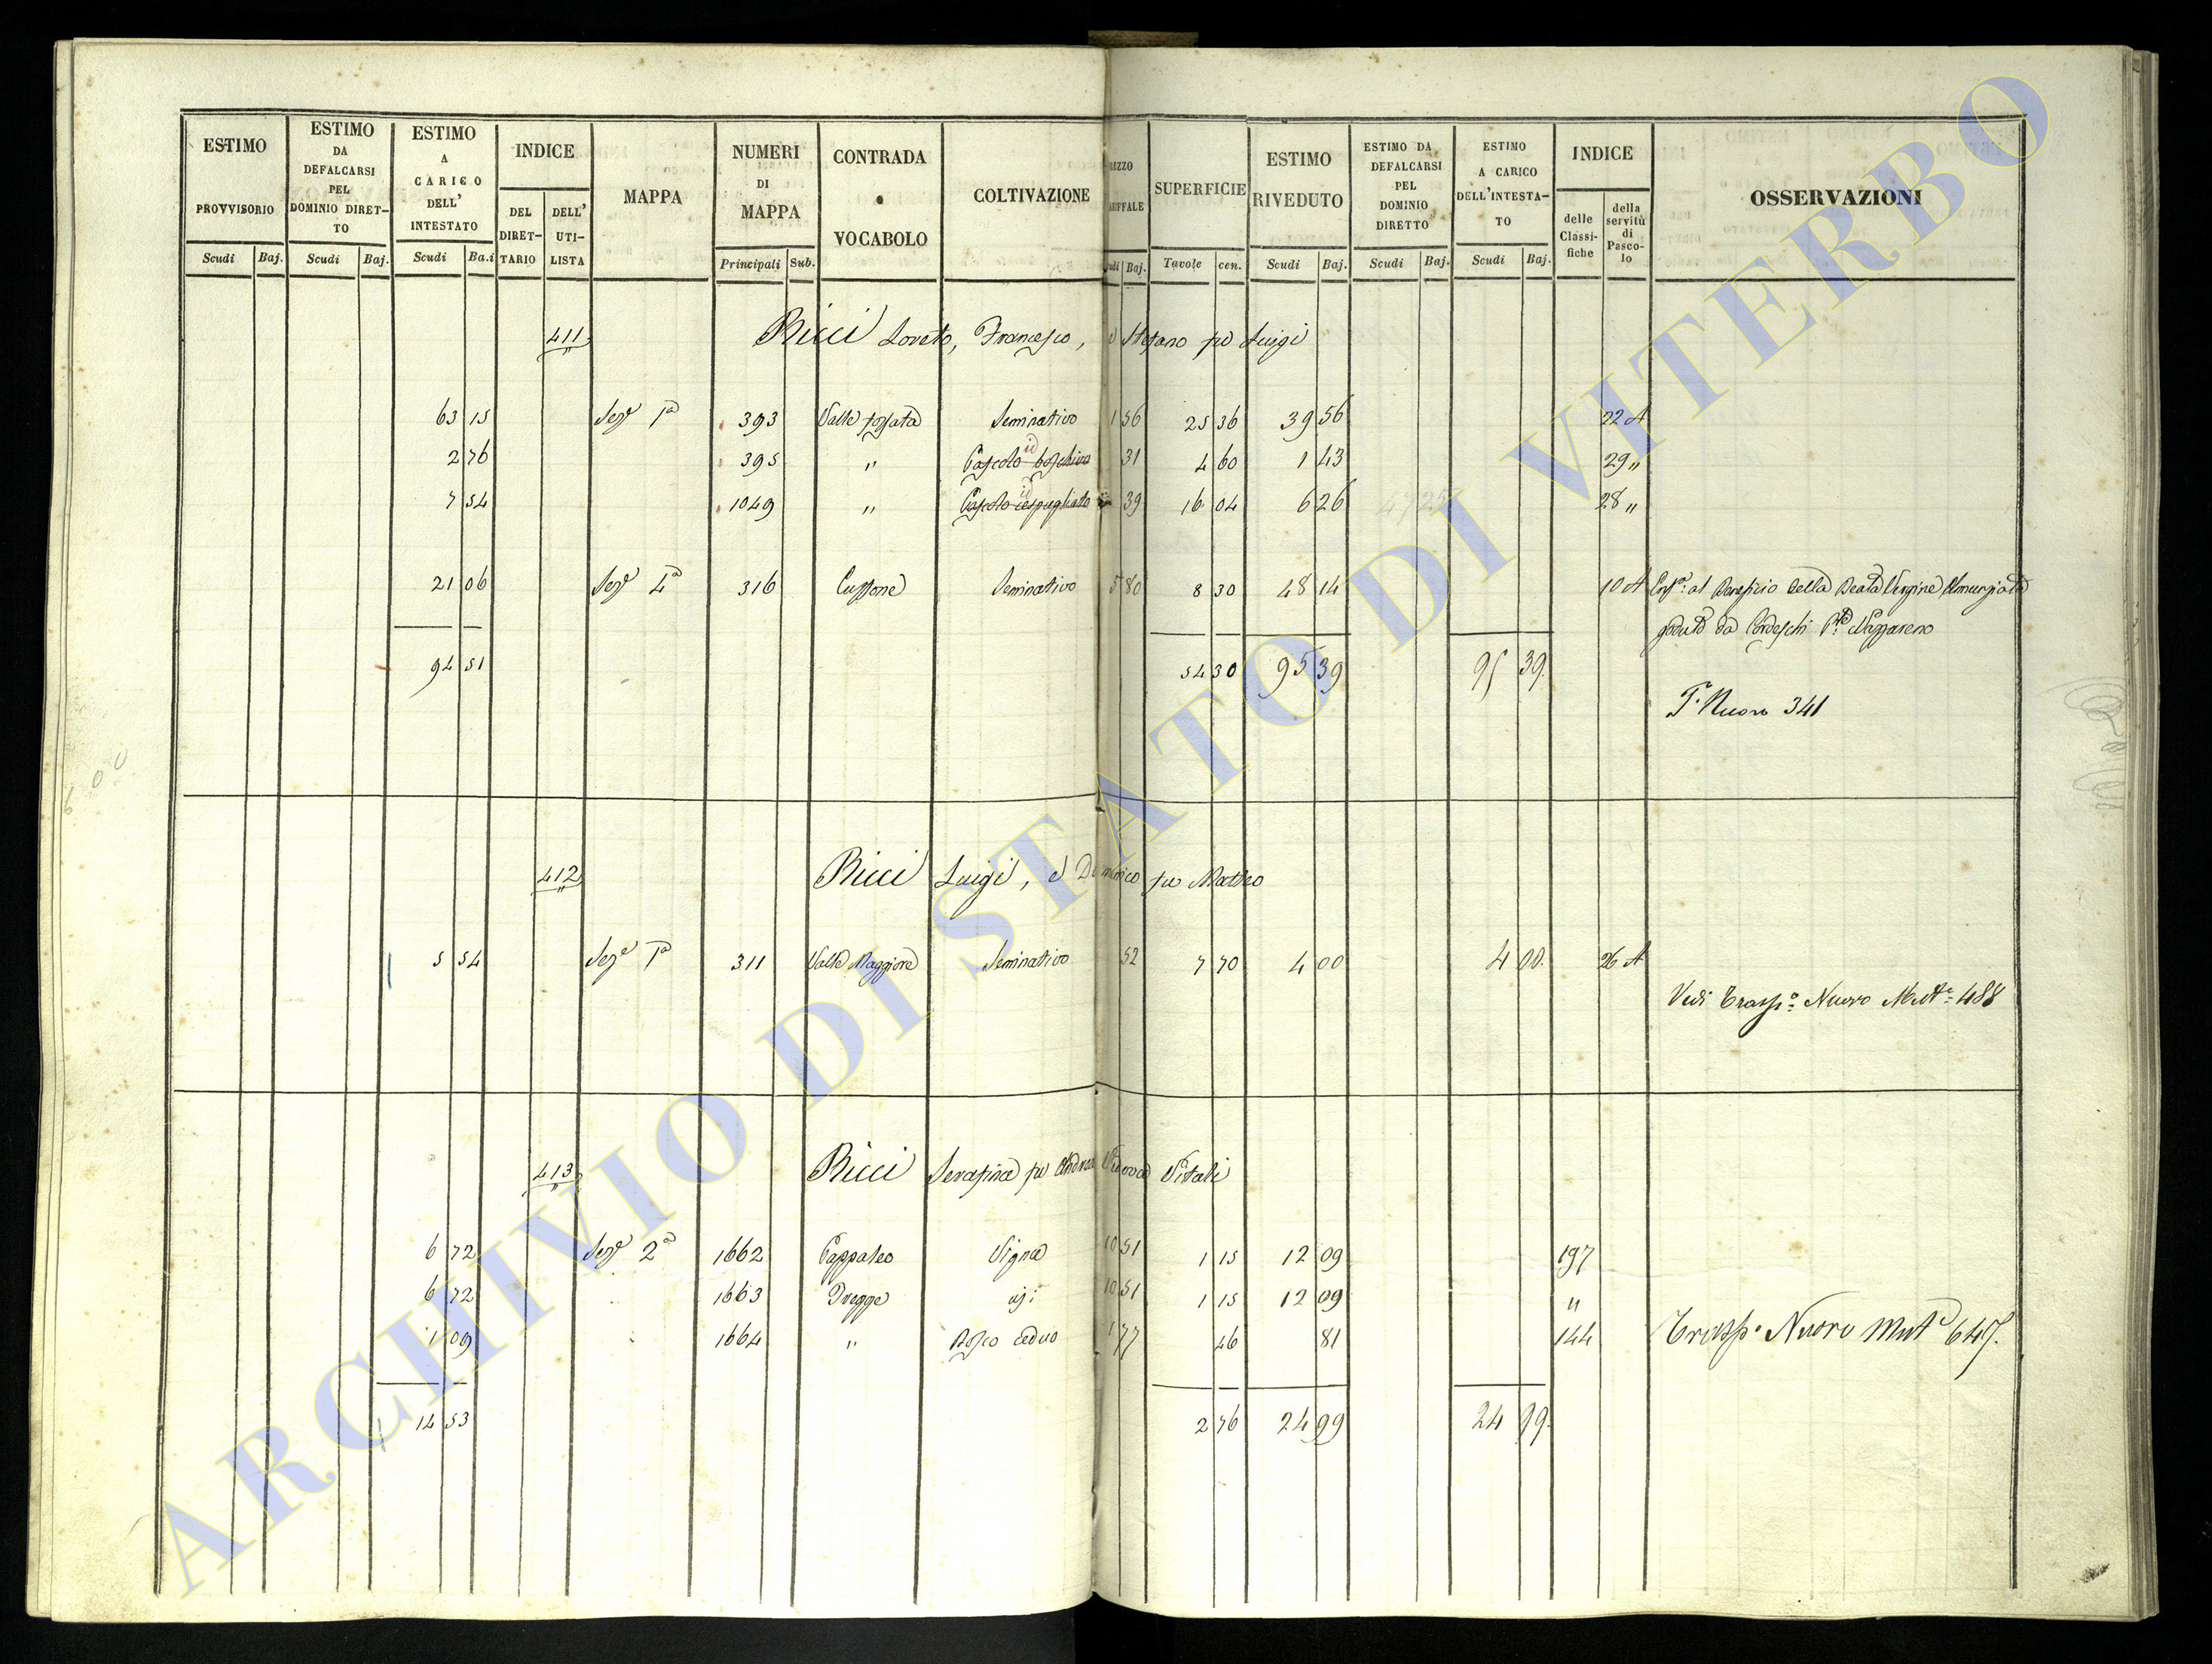 ESTIMO PROVVISORIO Scudi Baj.
ESTIMO DA DEFALCARSI PEL DOMINIO DIRET-TO Scudi Baj.
ESTIMO A CARICO DELL' INTESTATO Scudi Ba.i
INDICE DEL DIRET-TARIO DELL' UTI-LISTA
MAPPA
NUMERI DI MAPPA Principali Sub.
CONTRADA o VOCABOLO
COLTIVAZIONE
SUPERFICIE Tavole cen.
ESTIMO RIVEDUTO Scudi Baj.
ESTIMO DA DEFALCARSI PEL DOMINIO DIRETTO Scudi Baj.
ESTIMO A CARICO DELL'INTESTA-TO Scudi Baj.
INDICE delle Classi-fiche della servitù di Pasco-lo
OSSERVAZIONI
411 Ricci Loreto, Francesco, e Stefano fu Luigi
63 15 Seze 1a 393 Valle fossata Seminativo 1 56 25 36 39 56 22 A
2 76 395 " Pascolo boschivo id 31 4 60 1 43 29 "
7 54 1049 " Pascolo cespugliato id 39 16 04 6 26 28 "
21 06 Seze 4a 316 Seminativo 5 80 8 30 48 14 10 A al Beneficio della Beata Vergine
goduto da Cordeschi Nazzareno
94 51 54 30 95 39 95 39
T. Nuovo 341
412 Ricci Luigi, e Domenico fu Matteo
5 54 Seze 1a 311 Valle Maggiore Seminativo 52 7 70 4 00 4 00 26 A
Vedi Trasp.o Nuovo Mut.e 488
413 Ricci Serafina fu Andrea Vedova Vitali
6 72 Seze 2a 1662 Vigna 10 51 1 15 12 09 197
6 72 1663 10 51 1 15 12 09 "
1 09 1664 " Bosco ceduo 1 77 46 81 144
Trasp.o Nuovo Mut.e 647.
14 53 2 76 24 99 24 99
ARCHIVIO DI STATO DI VITERBO